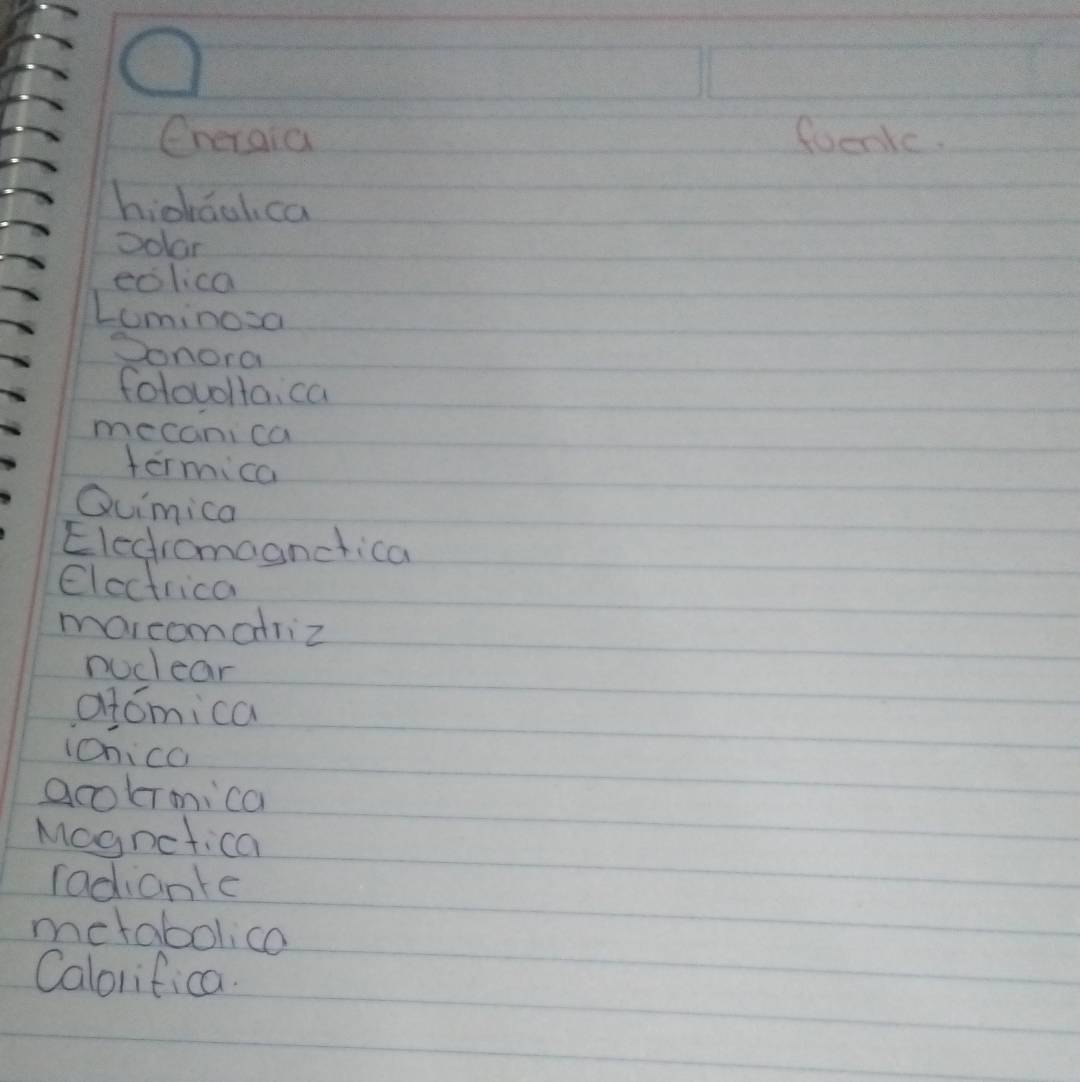 Energia fuente.
hidráulica
Solar
eólica
Luminosa
Sonora
fotovoltaica
mecánica
térmica
Química
Electromagnetica
Electrica
mareomotriz
nuclear
atómica
iónica
geotermica
Magnetica
radiante
metabolica
Calorifica.